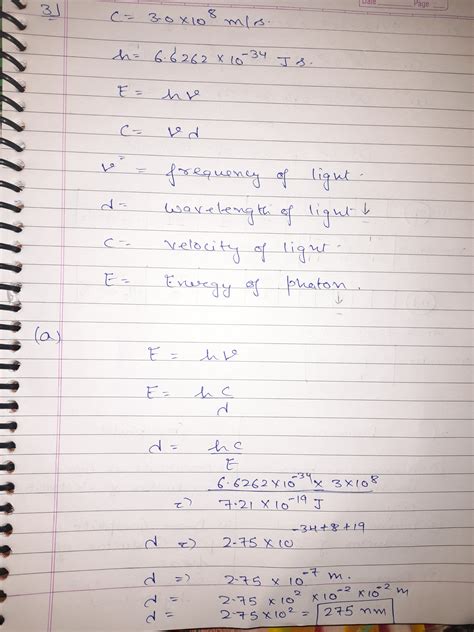 Date Page
3] C = 3.0 × 10^8 m/s.
h = 6.6262 × 10^-34 J s.
E = hν
C = νd
ν = frequency of light.
d = wavelength of light ↓
C = velocity of light.
E = Energy of photon. ↓
(a)
E = hν
E = h C/d
d = hC/E
⇒ 6.6262 × 10^-34 × 3 × 10^8 / 7.21 × 10^-19 J
d ⇒ 2.75 × 10^-34+8+19
d ⇒ 2.75 × 10^-7 m.
d = 2.75 × 10^2 × 10^-2 × 10^-2 m
d = 2.75 × 10^2 = 275 nm